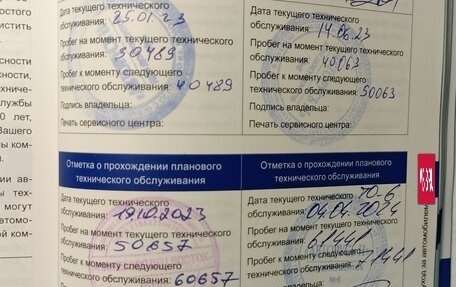 сти
осности
ости
техниче-
службы
0 лет,
Вашего
ны ком-
ии ав-
ы тех-
могут
втомо-
ой ком-
Дата текущего технического
обслуживания: 25.01.23
Пробег на момент текущего технического
обслуживания: 30489
Пробег к моменту следующего
технического обслуживания: 40489
Подпись владельца:
Печать сервисного центра:
Дата текущего технического
обслуживания: 14.06.23
Пробег на момент текущего технического
обслуживания: 40063
Пробег к моменту следующего
технического обслуживания: 50063
Подпись владельца:
Печать сервисного центра:
Отметка о прохождении планового
технического обслуживания
Дата текущего технического
обслуживания: 19.10.2023
Пробег на момент текущего технического
обслуживания: 50657
Пробег к моменту следующего
технического обслуживания: 60657
Подпись владельца:
Отметка о прохождении планового
технического обслуживания
Дата текущего технического ТО-6
обслуживания: 04.04.2024
Пробег на момент текущего технического
обслуживания: 61441
Пробег к моменту следующего
технического обслуживания: 71441
Подпись владельца:
уход за автомобилем